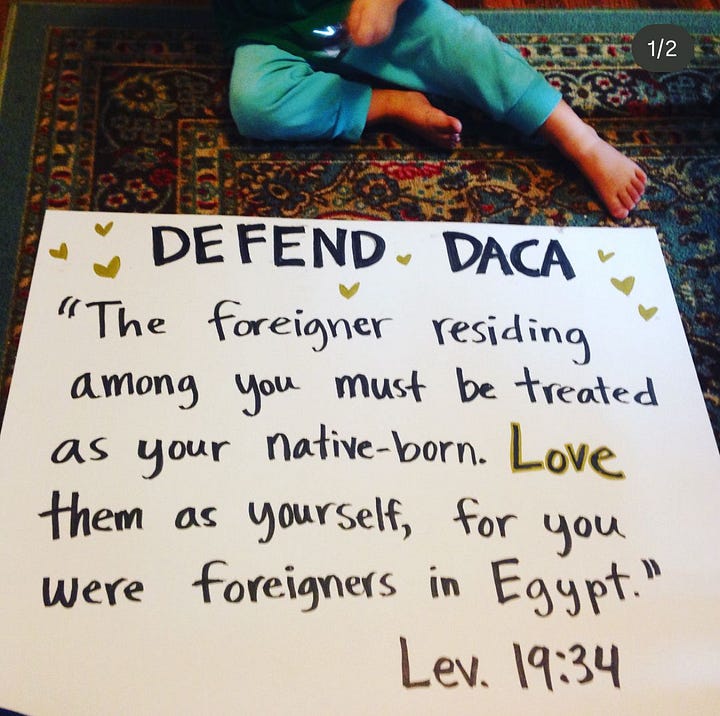 1/2
DEFEND DACA
"The foreigner residing
among you must be treated
as your native-born. Love
them as yourself, for you
were foreigners in Egypt."
Lev. 19:34